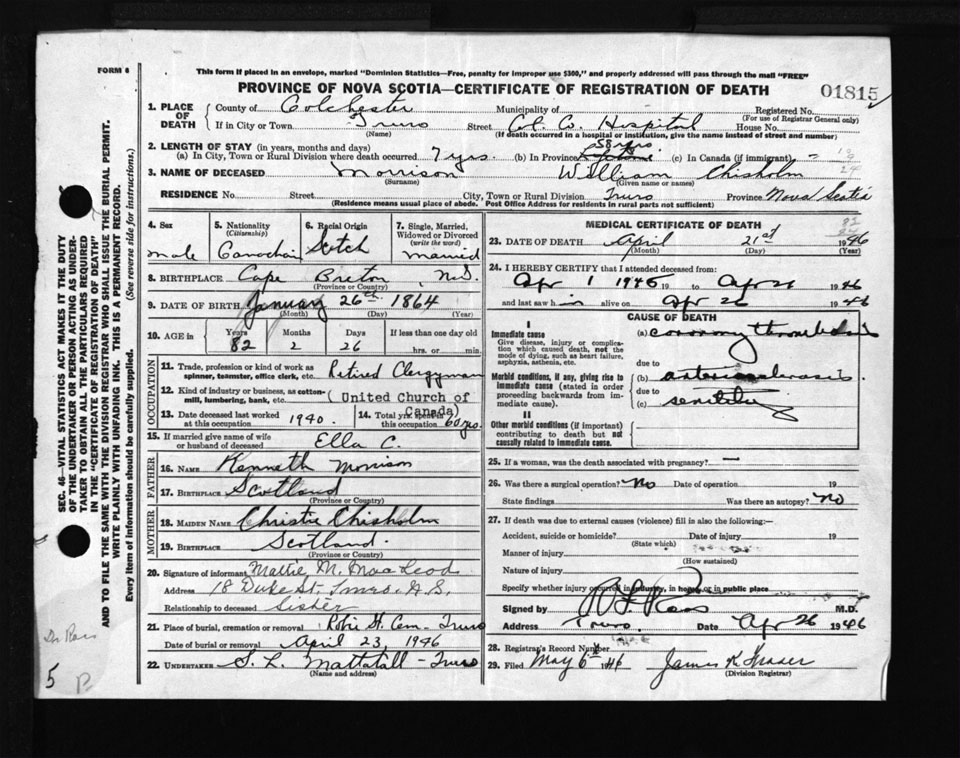 FORM 6
This form if placed in an envelope, marked "Dominion Statistics—Free, penalty for improper use $300," and properly addressed will pass through the mail "FREE"
PROVINCE OF NOVA SCOTIA—CERTIFICATE OF REGISTRATION OF DEATH
01815
1. PLACE OF DEATH
County of Colchester Municipality of Registered No.
(For use of Registrar General only)
If in City or Town Truro Street Col. Co. Hospital House No.
(Name) (If death occurred in a hospital or institution, give the name instead of street and number)
2. LENGTH OF STAY (in years, months and days) 58 yrs.
(a) In City, Town or Rural Division where death occurred 7 yrs. (b) In Province (c) In Canada (if immigrant) —
3. NAME OF DECEASED Morrison William Chisholm
(Surname) (Given name or names)
RESIDENCE No. Street City, Town or Rural Division Truro Province Nova Scotia
(Residence means usual place of abode. Post Office Address for residents in rural parts not sufficient)
4. Sex male
5. Nationality (Citizenship) Canadian
6. Racial Origin Scotch
7. Single, Married, Widowed or Divorced (write the word) married
8. BIRTHPLACE Cape Breton, N.S.
(Province or Country)
9. DATE OF BIRTH January 26th 1864
(Month) (Day) (Year)
10. AGE in Years 82 Months 2 Days 26 If less than one day old
hrs. or min.
OCCUPATION
11. Trade, profession or kind of work as spinner, teamster, office clerk, etc. Retired Clergyman
12. Kind of industry or business, as cotton-mill, lumbering, bank, etc. (United Church of Canada)
13. Date deceased last worked at this occupation 1940
14. Total yrs. spent in this occupation 60 yrs.
15. If married give name of wife or husband of deceased Ella C.
FATHER
16. NAME Kenneth Morrison
17. BIRTHPLACE Scotland
(Province or Country)
MOTHER
18. MAIDEN NAME Christie Chisholm
19. BIRTHPLACE Scotland.
(Province or Country)
20. Signature of informant Mattie M. MacLeod
Address 18 Duke St. Truro. N.S.
Relationship to deceased Sister
21. Place of burial, cremation or removal Robie St. Cem — Truro
Date of burial or removal April 23, 1946
22. UNDERTAKER S. L. Mattatall — Truro
(Name and address)
MEDICAL CERTIFICATE OF DEATH
23. DATE OF DEATH April 21st 1946
(Month) (Day) (Year)
24. I HEREBY CERTIFY that I attended deceased from:
Apr 1 1946 19 to Apr 26 1946
and last saw h im alive on Apr 26 1946
CAUSE OF DEATH
I
Immediate cause
Give disease, injury or complication which caused death, not the mode of dying, such as heart failure, asphyxia, asthenia, etc.
(a) coronary thrombosis
due to
Morbid conditions, if any, giving rise to immediate cause (stated in order proceeding backwards from immediate cause).
(b) arteriosclerosis
due to
(c) senility
II
Other morbid conditions (if important) contributing to death but not causally related to immediate cause.
25. If a woman, was the death associated with pregnancy? —
26. Was there a surgical operation? No Date of operation 19
State findings Was there an autopsy? No
27. If death was due to external causes (violence) fill in also the following:—
Accident, suicide or homicide? Date of injury 19
(State which)
Manner of injury
(How sustained)
Nature of injury
Specify whether injury occurred in industry, in home, or in public place
Signed by M.D.
Address Truro. Date Apr 26 1946
28. Registrar's Record Number
29. Filed May 6th 1946 James K. Fraser
(Division Registrar)
SEC. 46—VITAL STATISTICS ACT MAKES IT THE DUTY
OF THE UNDERTAKER OR PERSON ACTING AS UNDERTAKER
TO OBTAIN ALL THE PARTICULARS REQUIRED
IN THE "CERTIFICATE OF REGISTRATION OF DEATH"
AND TO FILE THE SAME WITH THE DIVISION REGISTRAR WHO SHALL ISSUE THE BURIAL PERMIT.
WRITE PLAINLY WITH UNFADING INK. THIS IS A PERMANENT RECORD.
Every item of information should be carefully supplied. (See reverse side for instructions.)
Dr Ross
5